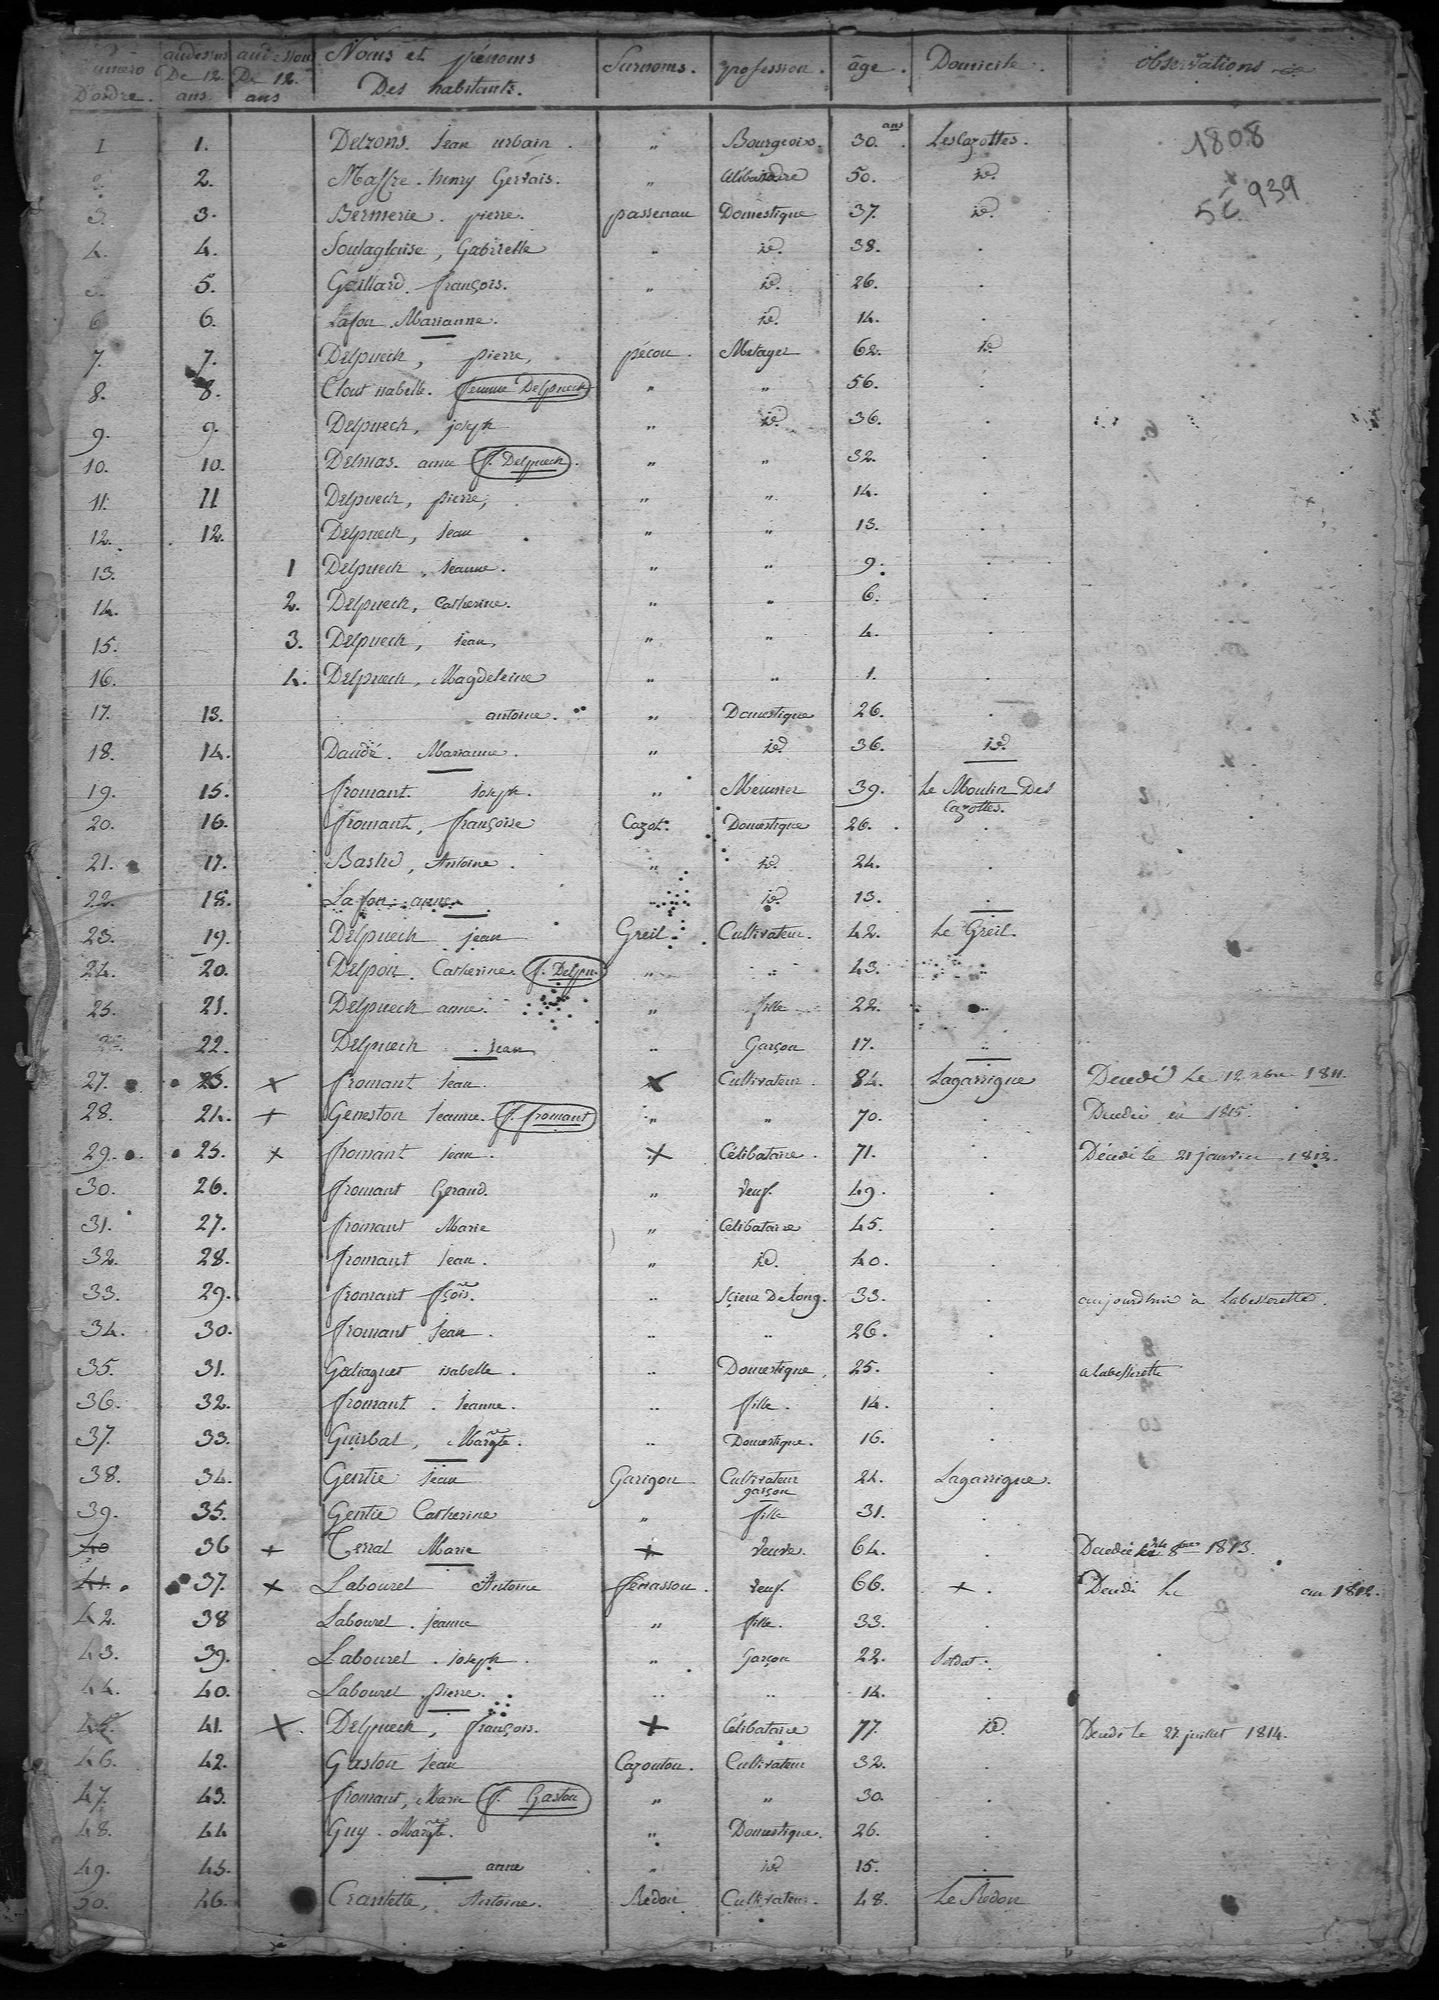 Numero D'ordre. audessus De 12. ans. audessous De 12. ans Noms et prénoms Des habitants. Surnoms. profession. âge. Domicile. observations
1 1. Delzons. Jean urbain. " Bourgeois. 30. ans Les Cazottes. 1808
2. 2. Maffre. henry Gervais. " Célibataire 50. id.
5 E 939
3. 3. Bermerie. pierre. passenau Domestique 37. id.
4. 4. Soulaglaise, Gabrielle " id. 38. .
5. 5. Gaillard. françois. " id. 26. .
6 6. Lafon. Marianne. id. 14. .
7. 7. Delpuech, pierre, pécou. Metayer 62. id.
8. 8. Clout isabelle. femme Delpuech " " 56. .
9. 9. Delpuech, joseph " id. 36. .
10. 10. Delmas. anne f. Delpuech. " " 32. .
11. 11 Delpuech, pierre, " " 14. .
12. 12. Delpuech, Jean " " 13. .
13. 1 Delpuech, Jeanne. " " 9. .
14. 2. Delpuech, Catherine. " " 6. .
15. 3. Delpuech, Jean, " " 4. .
16. 4. Delpuech, Magdeleine " " 1. .
17. 13. antoine. " Domestique 26. .
18. 14. Daudé. Marianne. " id 36. id.
19. 15. fromant. Joseph. " Meunier 39. Le Moulin Des Cazottes.
20. 16. fromant, françoise Cazot. Domestique 26. .
21. 17. Bastid, Antoine. " id. 24. .
22. 18. Lafon anne. " id. 13. .
23. 19. Delpuech jean Greil. Cultivateur. 42. Le Greil.
24. 20. Delpon. Catherine. f. Delpu. " " 43. "
25. 21. Delpuech anne. " fille 22. "
22. Delpuech. Jean " Garçon 17. "
27. 23. x fromant Jean. x Cultivateur. 84. Lagarrigue Decedé Le 12 xbre 1811.
28. 24. + Geneston Jeanne. f. fromant " " 70. . Decedée en 1815.
29. 25. x fromant Jean. x Célibataire. 71. . Décedé le 21 janvier 1813.
30. 26. fromant Geraud. " Veuf. 49. .
31. 27. fromant Marie " Celibataire 45. .
32. 28. fromant Jean. " id. 40. .
33. 29. fromant fçois. " Scieur De Long. 33. . aujourdhui à Labesserette.
34. 30. fromant Jean. " " 26. .
35. 31. Galiaguet isabelle. " Domestique, 25. . a labesserette
36. 32. fromant. Jeanne. " fille. 14. .
37. 33. Guirbal, Margte. " Domestique. 16. .
38. 34. Gentie Jean Garigou Cultivateur garçon 24. Lagarrigue.
39. 35. Gentie Catherine " fille 31. .
40 36 + Terral Marie + Veuve. 64. . Decedée 8bre 1813.
41. 37. x Labourel Antoine ferrassou. Veuf. 66. +. Decedé Le an 1812.
42. 38 Labourel. Jeanne " fille. 33. .
43. 39. Labourel. Joseph. " Garçon 22. Soldat.
44. 40. Labourel pierre. " " 14. .
45. 41. X. Delpuech, françois. + Célibataire 77. id. Decedé le 27 juillet 1814.
46. 42. Gaston Jean Cazoulou. Cultivateur 32. .
47. 43. fromant, Marie f. Gaston " " 30. .
48. 44 Guy. Margte. " Domestique. 26. .
49. 45. anne " id 15. .
50. 46. Crantelle, Antoine. Redon Cultivateur. 48. Le Redon